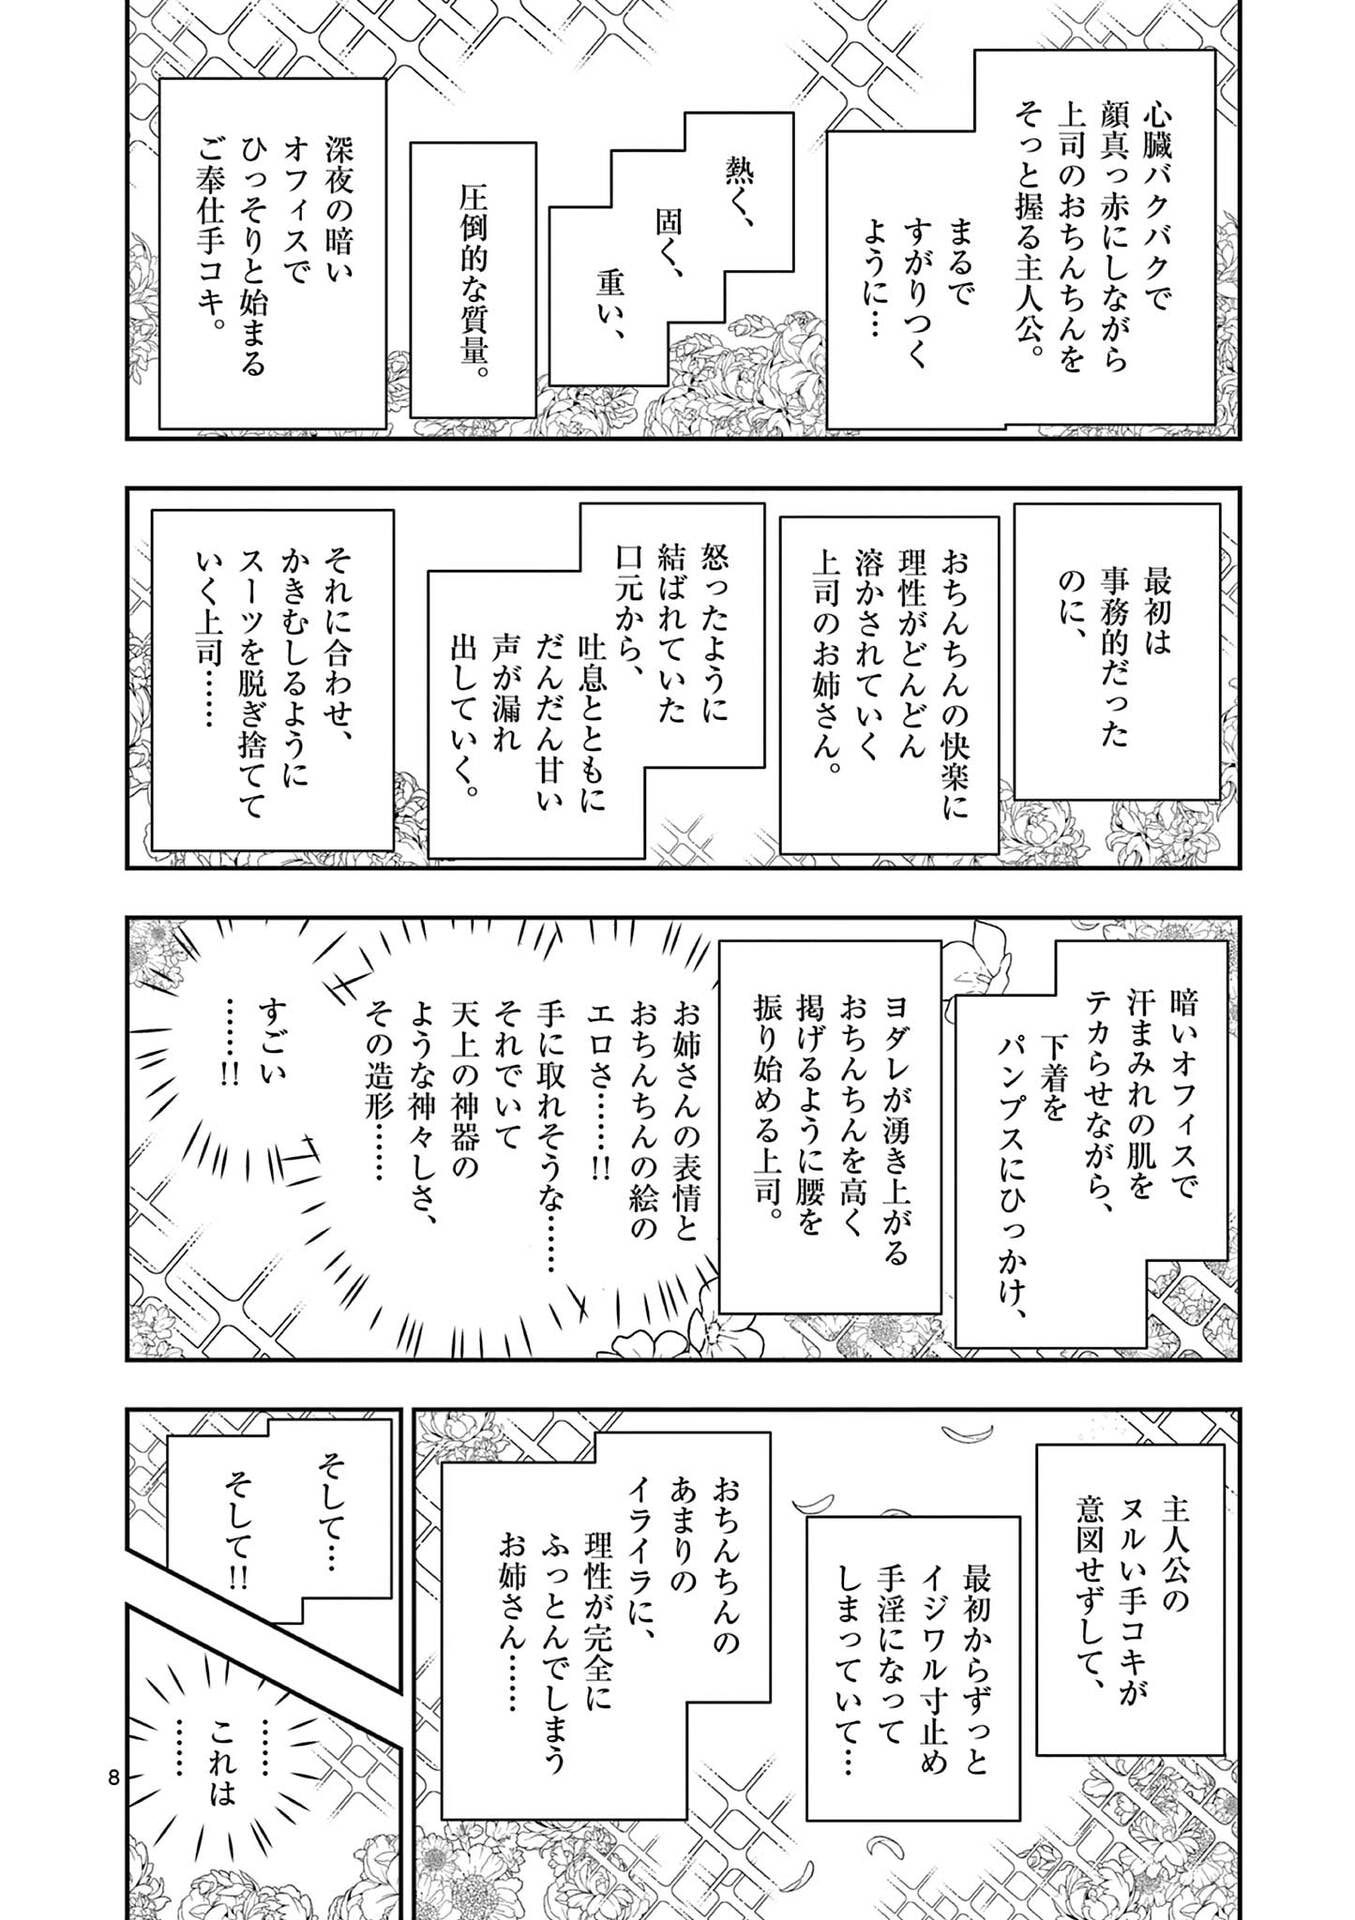 心臓バクバクで
顔真っ赤にしながら
上司のおちんちんを
そっと握る主人公。
まるで
すがりつく
ように…
熱く、
固く、
重い、
圧倒的な質量。
深夜の暗い
オフィスで
ひっそりと始まる
ご奉仕手コキ。
最初は
事務的だった
のに、
おちんちんの快楽に
理性がどんどん
溶かされていく
上司のお姉さん。
怒ったように
結ばれていた
口元から、
吐息とともに
だんだん甘い
声が漏れ
出していく。
それに合わせ、
かきむしるように
スーツを脱ぎ捨てて
いく上司……
暗いオフィスで
汗まみれの肌を
テカらせながら、
下着を
パンプスにひっかけ、
ヨダレが湧き上がる
おちんちんを高く
掲げるように腰を
振り始める上司。
お姉さんの表情と
おちんちんの絵の
エロさ……!!
手に取れそうな……
それでいて
天上の神器の
ような神々しさ、
その造形……
すごい
……!!
主人公の
ヌルい手コキが
意図せずして、
最初からずっと
イジワル寸止め
手淫になって
しまっていて…
おちんちんの
あまりの
イライラに、
理性が完全に
ふっとんでしまう
お姉さん……
そして…
そして!!
……
これは
……
8